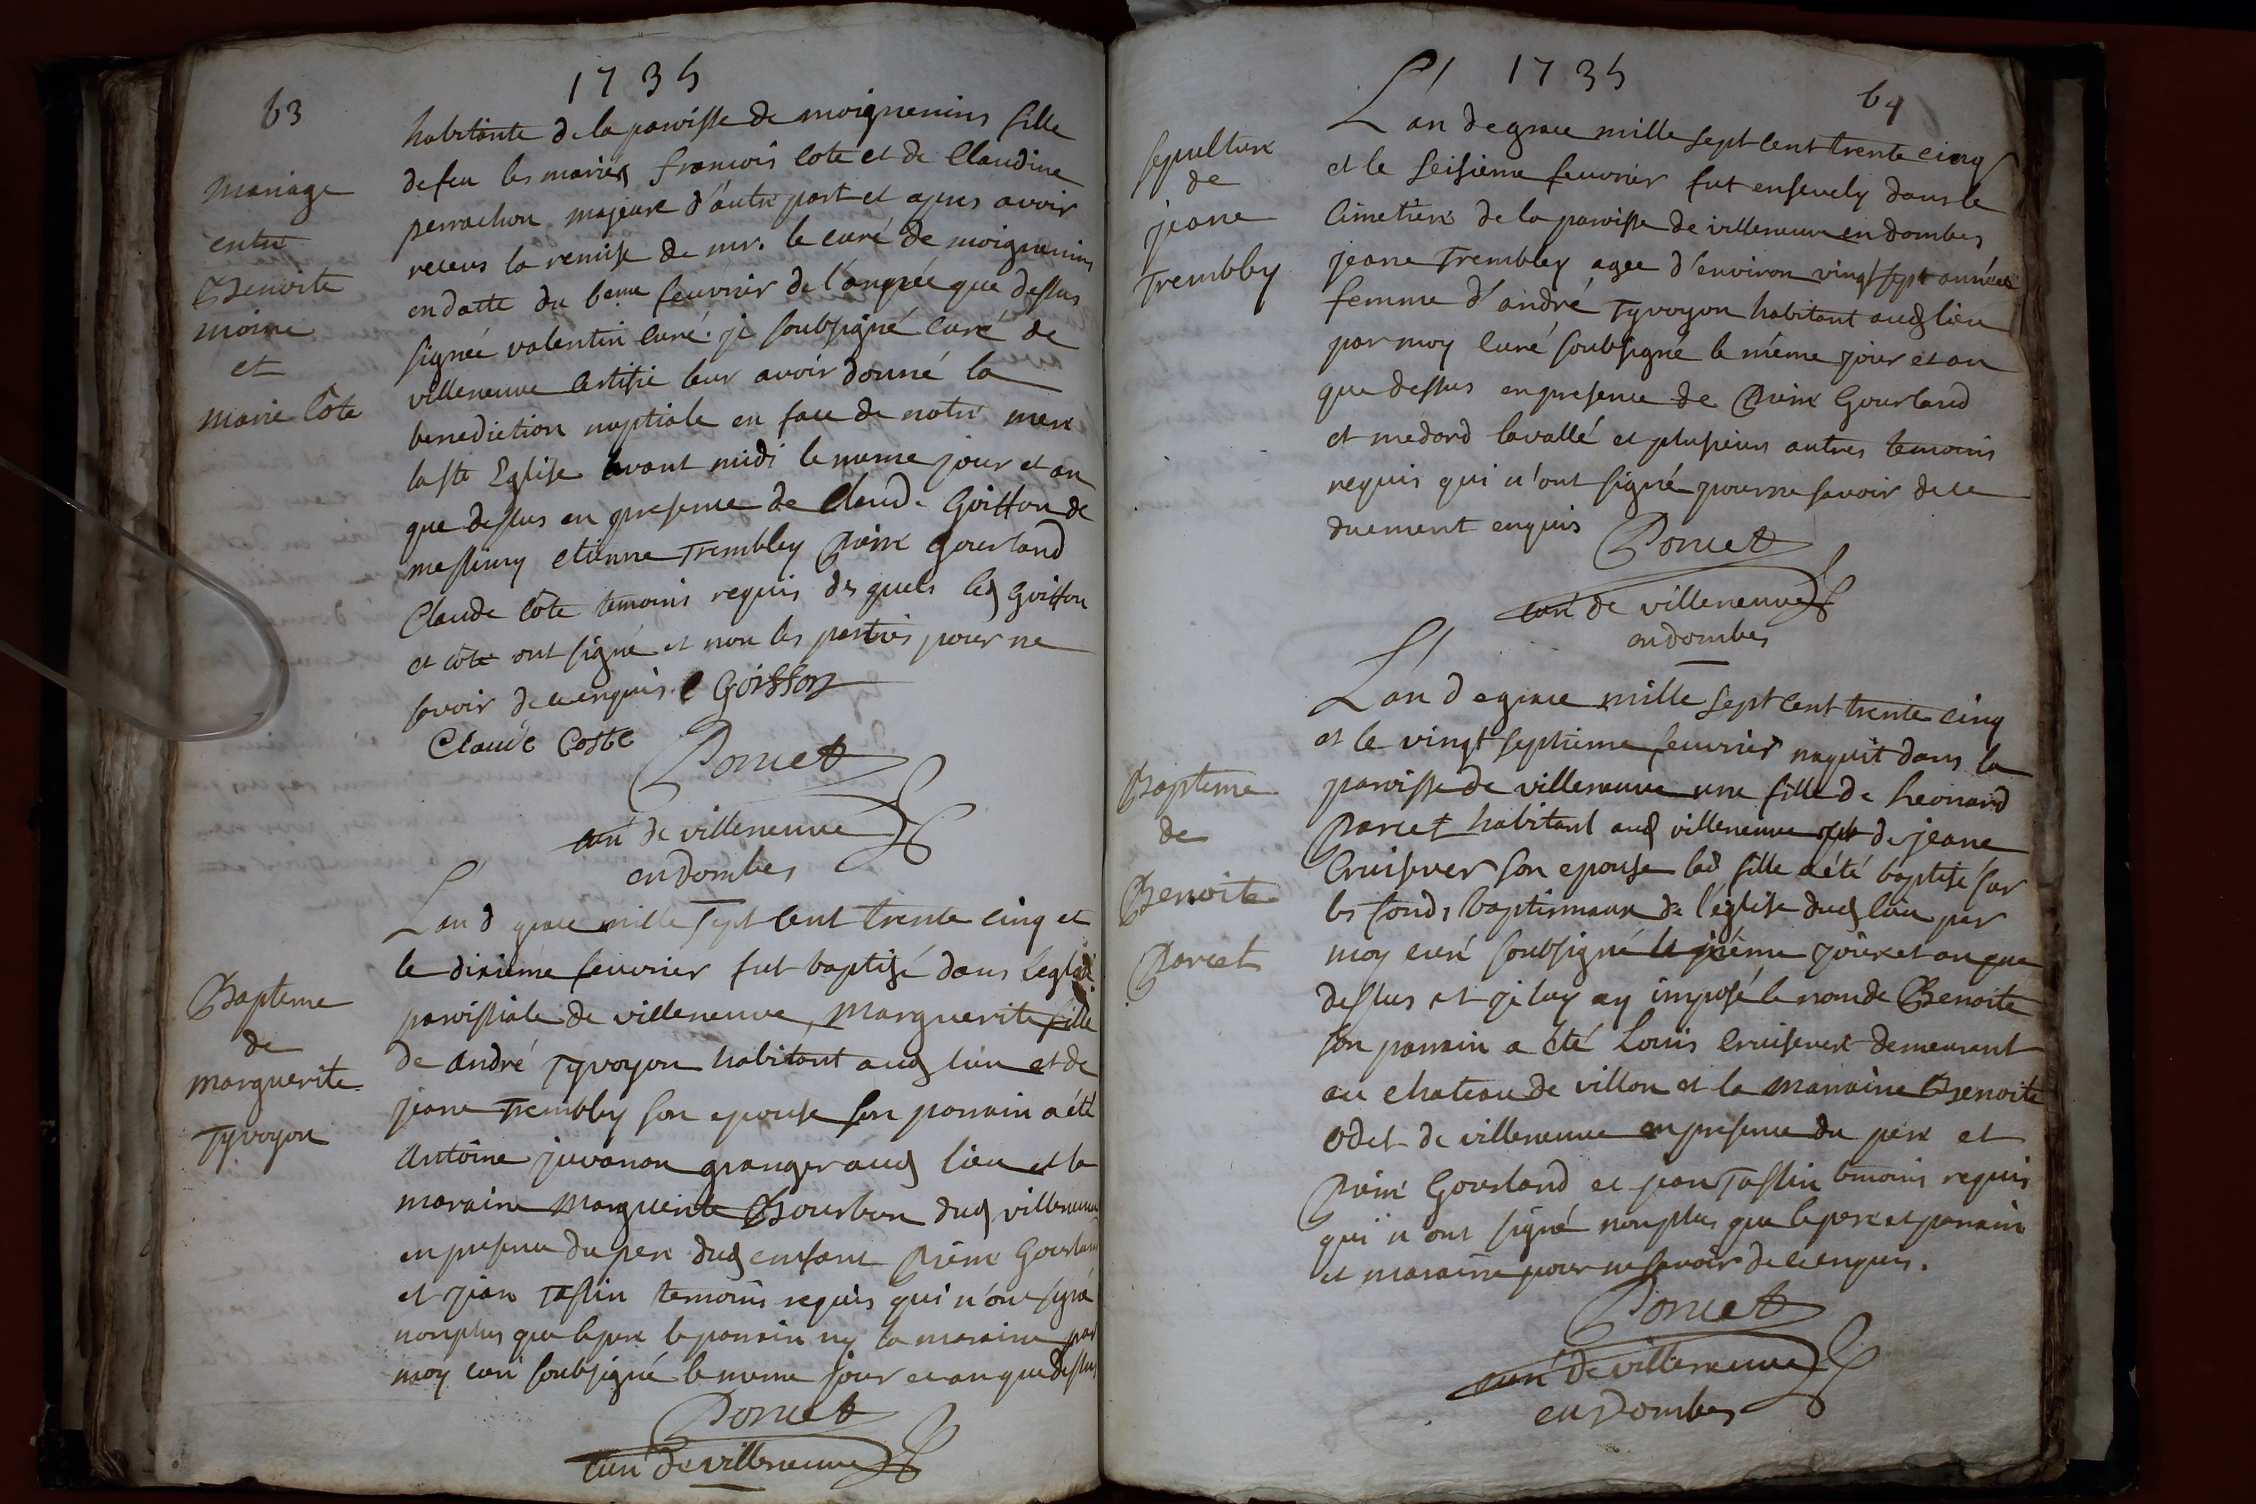 1735
63
mariage
entre
Benoite
moine
et
marie Côte
habitante de la parroisse de moignenins fille
defeu les mariés francois Cote et de Claudine
perrachon majeure d'autre part et apres avoir
receus la remise de mr. le curé de moignenins
en datte du 6eme feuvrier de l'année que dessus
signée valentin curé. je soubsigné curé de
villeneuve Certifie leur avoir donné la
benediction nuptiale en face de notre mere
la ste Eglise avant midi le meme jour et an
que dessus en presence de Claude Goiffon de
messimy etienne Trembley Pierre Gourland
Claude Côte temoins requis des quels led Goiffon
et côte ont signé et non les parties pour ne
savoir de ce enquis. C Goiffon
Claude Coste
Poncet
curé de villeneuve
en Dombes
Bapteme
de
marguerite
Tyvoyon
L'an d grace mille sept Cent trente cinq et
le dixieme feuvrier fut baptizé dans l'eglise
parroissiale de villeneuve, Marguerite fille
de André Tyvoyon habitant aud lieu et de
jeane Trembley son epouse son parrain a été
Antoine juvanon granger aud lieu et la
maraine Marguerite Bourbon dud villeneuve
en presence du pere dud enfant Pierre Gourland
et jean Taslin temoins requis qui n'ont signé
nonplus que le pere le parrain ny la maraine par
moy curé soubsigné le meme jour et an que dessus
Poncet
curé de villeneuve
1735
64
sepulture
de
jeane
Trembley
L'an degrace mille sept Cent trente cinq
et le seisieme feuvrier fut ensevely dans le
Cimetiere de la parroisse de villeneuve en dombes
jeane Trembley agee d'environ vingt sept années
femme d'andré Tyvoyon habitant aud lieu
par moy curé soubsigné le même jour et an
que dessus en presence de Pierre Gourland
et medard lavallé et plusieurs autres temoins
requis qui n'ont signé pour ne savoir de ce
duement enquis
Poncet
curé de villeneuve
en dombes
Bapteme
de
Benoite
Parcet
L'an degrace mille sept Cent trente cinq
et le vingt septieme feuvrier naquit dans la
parroisse de villeneuve une fille de Leonard
Parcet habitant aud villeneuve et de jeane
Cruisever son epouse lad fille a été baptisé sur
les fonds baptismaux de l'eglise dud lieu par
moy curé soubsigné le même jour et an que
dessus et je luy ay imposé le nom de Benoite
son parrain a été Louis Cruisever demeurant
au chateau de villon et la marraine Benoite
Odet de villeneuve en presence du pere et
Pierre Gourland et jean Taslin temoins requis
qui n'ont signé nonplus que le pere et parrain
et maraine pour ne savoir de ce enquis.
Poncet
curé de villeneuve
en Dombes